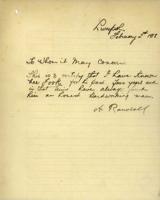 Liverpool
February 2nd 19
To Whom it May Concern
This is to certify that I have known
has for the past four years and
in that time have always found
him an honest hardworking man
A Randall